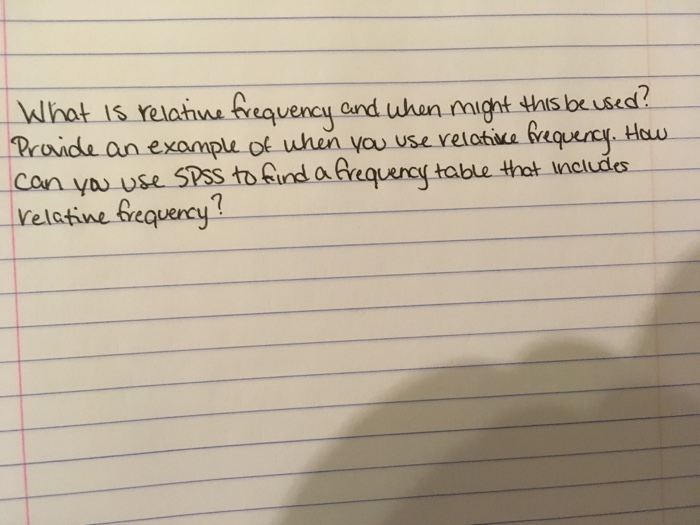 What is relative frequency and when might this be used?
Provide an example of when you use relative frequency. How
can you use SPSS to find a frequency table that includes
relative frequency?